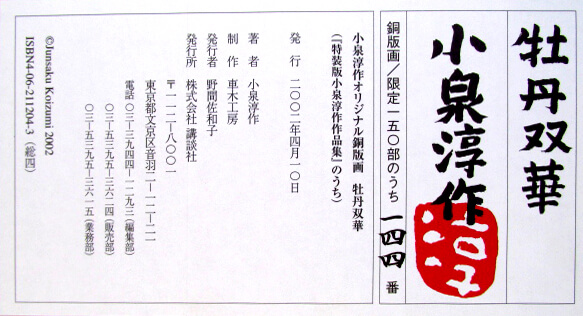 牡丹双華
小泉淳作
銅版画／限定一五〇部のうち 一四四 番
小泉淳作オリジナル銅版画 牡丹双華
(『特装版小泉淳作作品集』のうち)
発行 二〇〇二年四月一〇日
著者 小泉淳作
制作 車木工房
発行者 野間佐和子
発行所 株式会社 講談社
〒一一二-八〇〇一
東京都文京区音羽二-一二-二一
電話 〇三-三九四四-一二九三(編集部)
〇三-五三九五-三六二四(販売部)
〇三-五三九五-三六一五(業務部)
©Junsaku Koizumi 2002
ISBN4-06-211204-3 (総四)